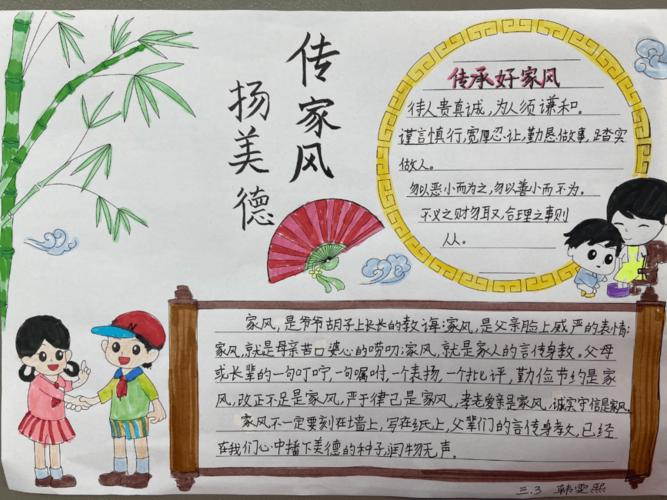 传家风
扬美德
传承好家风
待人贵真诚，为人须谦和。
谨言慎行，宽厚忍让，勤恳做事，踏实
做人。
勿以恶小而为之，勿以善小而不为。
不义之财勿取，合理之事则
从。
家风，是爷爷胡子上长长的教诲；家风，是父亲脸上威严的表情；
家风，就是母亲苦口婆心的唠叨；家风，就是家人的言传身教。父母
或长辈的一句叮咛，一句嘱咐，一个表扬，一个批评，勤俭节约是家
风，改正不足是家风，严于律己是家风，孝老爱亲是家风，诚实守信是家风。
家风不一定要刻在墙上，写在纸上，父辈们的言传身教，已经
在我们心中播下美德的种子，润物无声。
三.3 韩雯熙